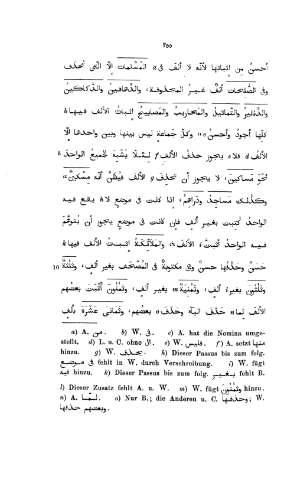 ٢٥٥
أحسن من إثباتها لأنه لا ألف فى المسلمات إلا التى تحذف
وفى الصالحات ألف غير المحذوفة، والدهاقين والدكاكين
والدنانير والتماثيل والمحاريب والمصابيح إثبات الألف فيها
كلها أجود وأحسن، وكل جماعة ليس بينها وبين واحدها إلا
الألف فلا يجوز حذف الألف لئلا يشبه الجميع الواحد
نحو مساكين، لا يجوز أن تحذف الألف فيظن أنه مسكين
وكذلك مساجد ودراهم، إذا كانت فى موضع لا يقع فيه
الواحد أثبتت بغير ألف، وإن كانت فى موضع يجوز أن يتوهم
فيه الواحد أثبتت الألف، والملائكة إثبات الألف فيها
حسن وحذفها حسن وهى مكتوبة فى المصاحف بغير ألف، وثلثة 10
بغير ألف، وثمنية بغير ألف، وثمنون أثبت بعضهم
الألف لما حذف الياء وحذف بعضهم، وثمانى عشرة بألف
a) A. من. b) W. فى. c) A. hat die Nomina umge-
stellt. d) L. u. C. ohne ال. e) W. فليس. f) A. setzt منها
hinzu. g) W. تحذف. h) Dieser Passus bis zum folg.
موضع fehlt in W. durch Verschreibung. i) W. fügt
فيه hinzu. k) Dieser Passus bis zum folg. بغير fehlt B.
l) Dieser Zusatz fehlt A. u. W. m) W. fügt وثمنون hinzu.
n) A. لما. o) Nur B.; die Anderen u. C. وحذفها; W.
وبعضهم حذفها.